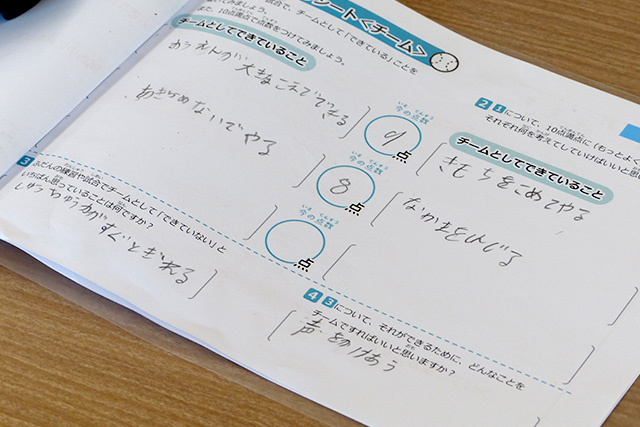 シート<チーム>
試合で、チームとして「できている」ことを
いてみましょう。
た、10点満点で点数をつけてみましょう。
チームとしてできていること
おうえんが 大きなこえでできる
いま てんすう
今の点数
9
点
あきらめないでやる
いま てんすう
今の点数
8
点
いま てんすう
今の点数
点
2 1について、10点満点に(もっとよ
それぞれ何を考えてしていけばいいと思
チームとしてできていること
きもちをこめてやる
なかまをしんじる
3 ふだんの練習や試合でチームとして「できていない」と
いちばん思っていることは何ですか?
しゅうちゅう力が
すぐとぎれる
4 3について、それができるために、どんなことを
チームですればいいと思いますか?
声をかけあう